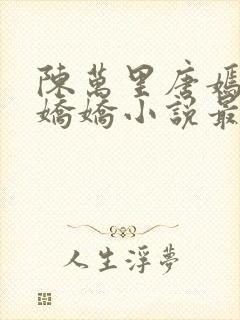 陳萬里唐嫣
嬌嬌小說最
人生浮夢